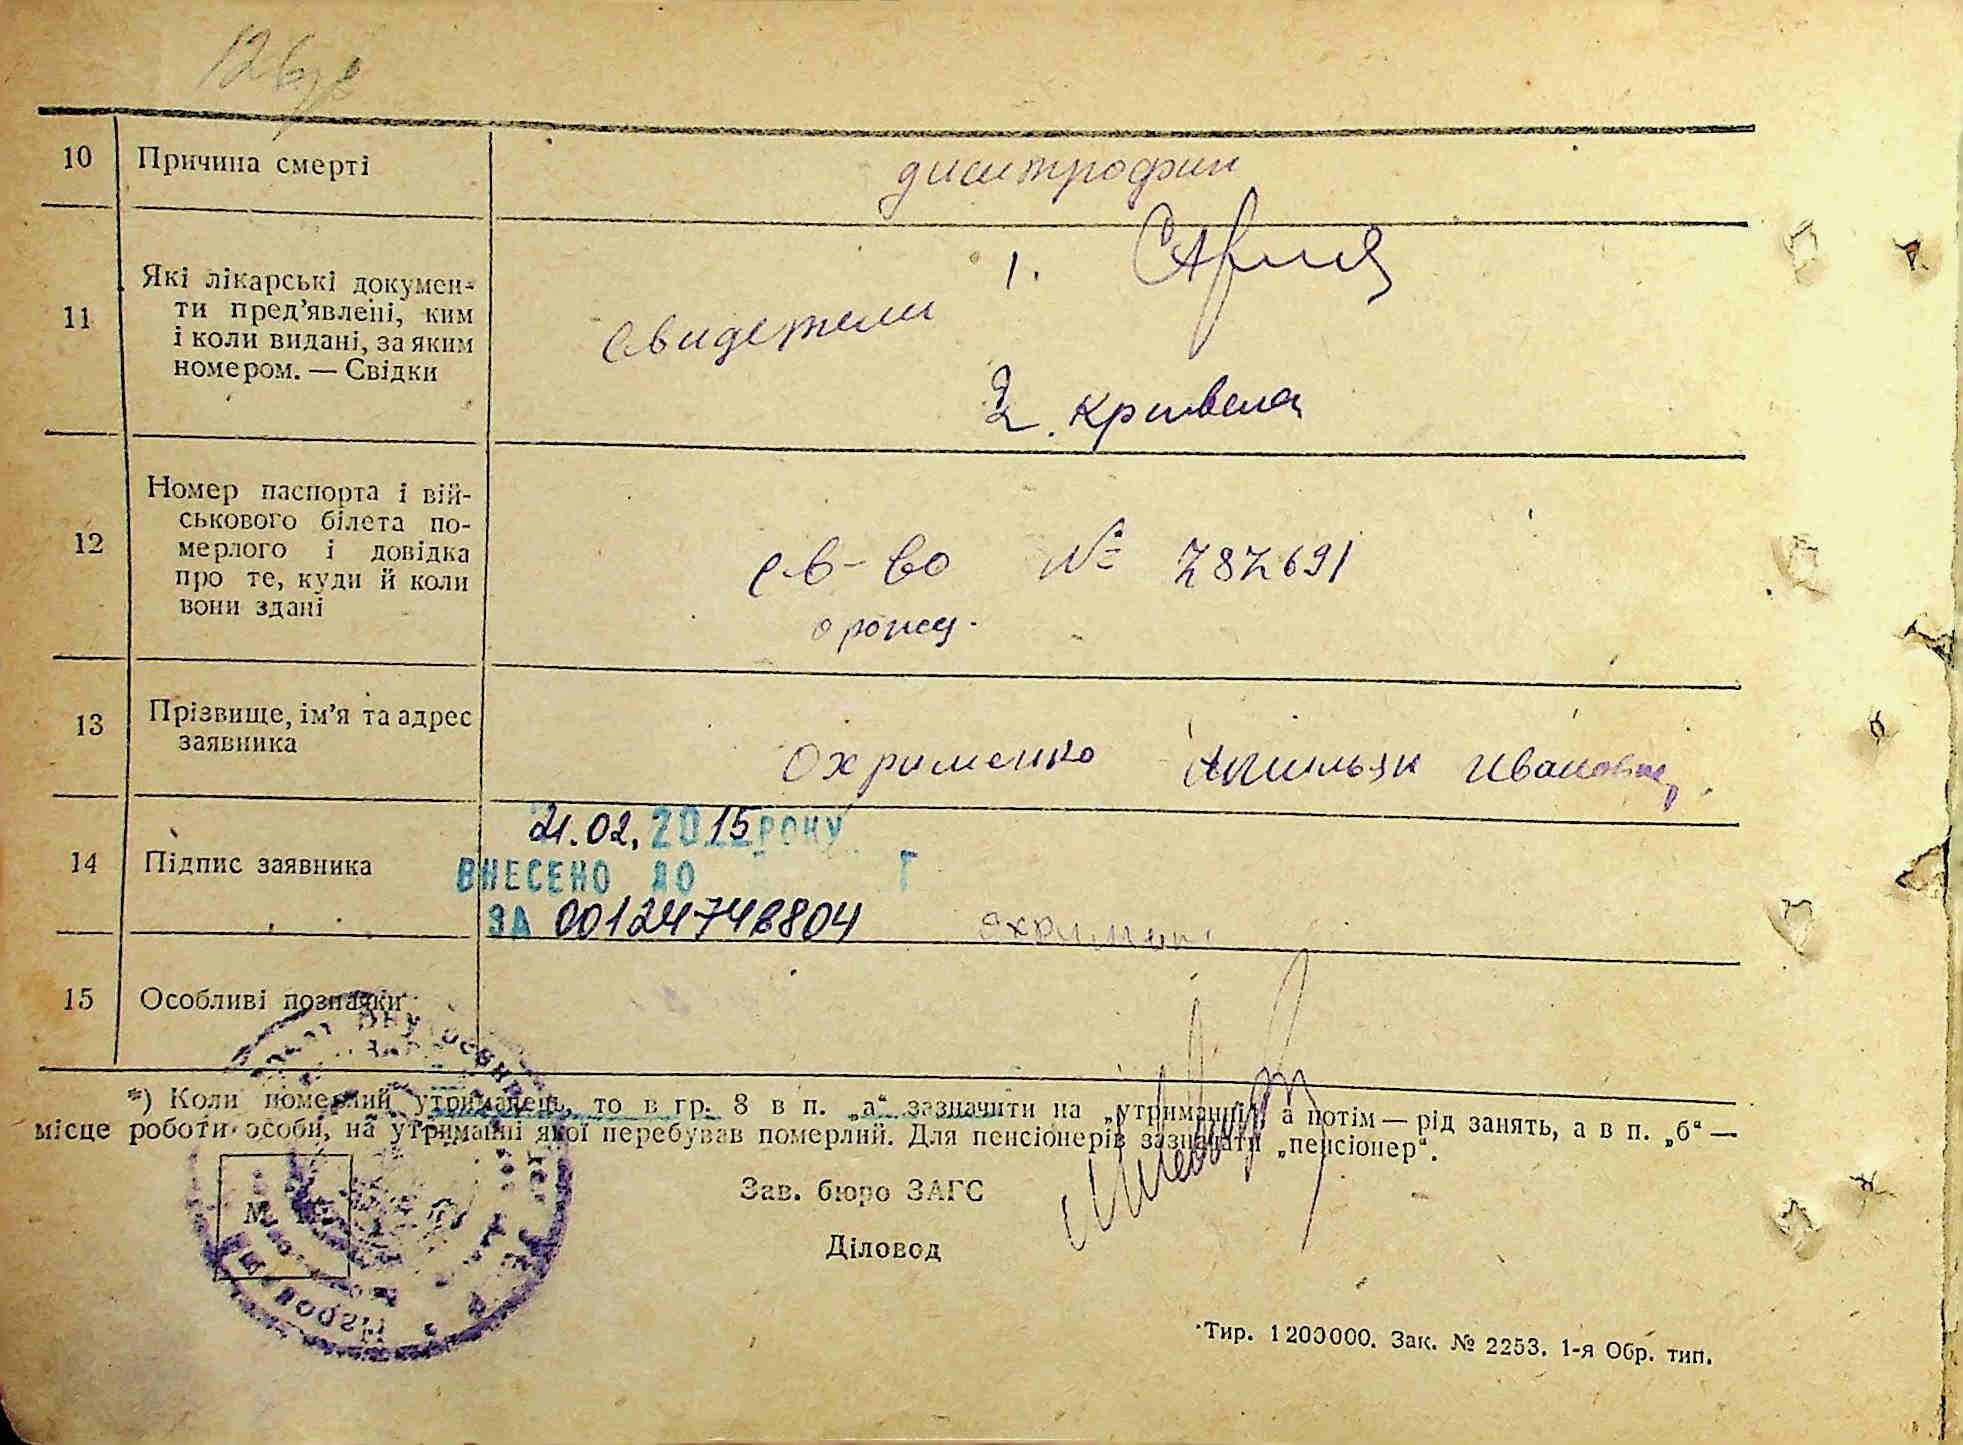 10 Причина смерті
дистрофии
11 Які лікарські докумен-
ти пред'явлені, ким
і коли видані, за яким
номером. — Свідки
1.
Свидетели
2. Кривела
12 Номер паспорта і вій-
ськового білета по-
мерлого і довідка
про те, куди й коли
вони здані
св-во № 787691
о рожд.
13 Прізвище, ім'я та адрес
заявника
Охрименко Иванович
21.02.2015 РОКУ
14 Підпис заявника
ВНЕСЕНО ДО
ЗА 00124748804
15 Особливі позначки
*) Коли померлий утриманець, то в гр. 8 в п. „а“ зазначити на „утриманні“, а потім — рід занять, а в п. „б“ —
місце роботи особи, на утриманні якої перебував померлий. Для пенсіонерів зазначати „пенсіонер“.
Зав. бюро ЗАГС
Діловод
Тир. 1200000. Зак. № 2253. 1-я Обр. тип.